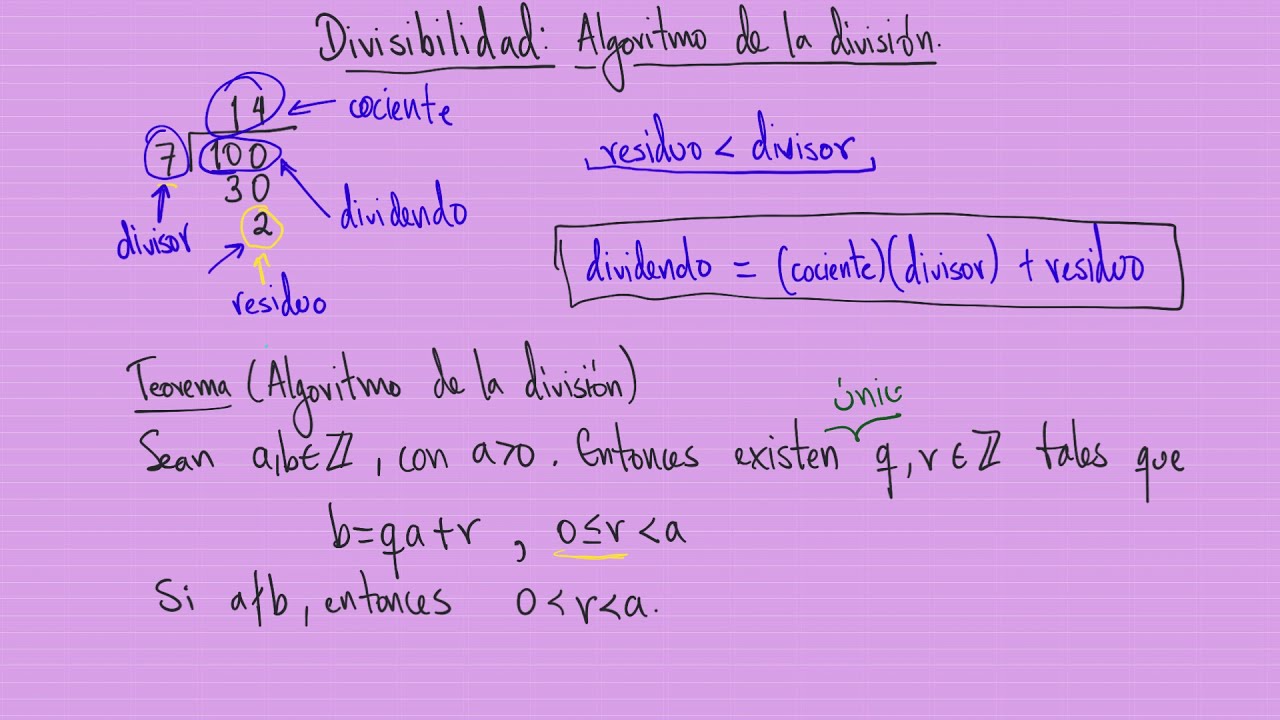 Divisibilidad: Algoritmo de la división.
14 ← cociente
7 100
30
2
divisor
dividendo
residuo
residuo < divisor
dividendo = (cociente)(divisor) + residuo
Teorema (Algoritmo de la división)
únic
Sean a,b∈ℤ, con a>0. Entonces existen q,r∈ℤ tales que
b=qa+r, 0≤r<a
Si a∤b, entonces 0<r<a.